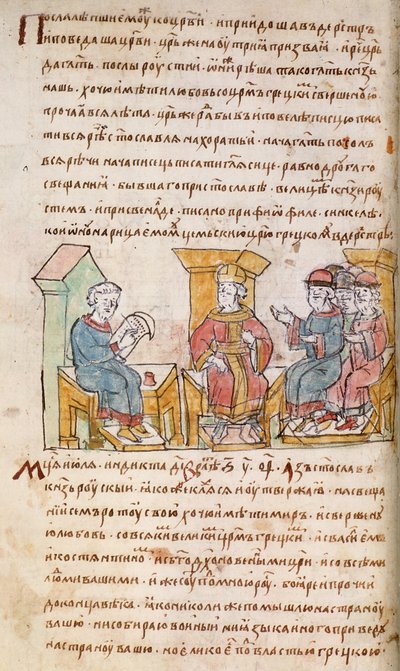 Посла лѣпшиемоу ко црв҃и · и приидоша въ дерестръ
и поведаша црв҃и · цр҃ь же наоутриꙗ призва ꙗ · и реⷱ цр҃ь
да гл҃ть послы роустии · ѡни же рѣша тако гл҃ть кнз҃ь
нашь · хочю имѣти любовь со црмъ грецкиⷨ свершеноую
прочаꙗ всѧ лѣта · цр҃ь же раⷣ бывъ и повелѣ писцю писа
ти всѧ рѣⷱ стославлѧ на харатью · нача гл҃ть посолъ
всѧ рѣчи · нача писець писати гл҃ѧ сице · равно дроугаго
свещаниꙗ · бывшаго при стославе · велицѣⷨ кнз҃и роу
стемъ · и при свенаⷧде · писано при фиѡфиле · синкелѣ ·
ко иѡноу нарицаемоⷨ цемьскию црю грецкомоу въ дерестрѣ
Мцⷭа июлѧ · индикта д҃і · в лѣⷮ ҂ѕ҃ · у҃ · ѻ҃ѳ · Азъ стославъ
кнз҃ь роускыи · ꙗкоже клѧсѧ и оутвержаю · на свеща
нии семъ ротоу свою хочю имѣти миръ · и свершеноу
ю любовь · со всѧкиⷨ великиⷨ црмъ грецкиⷨ · и с васильеⷨ
и костѧнтиноⷨ · и с бг҃одхновеными цри · и со всѣми
люⷣми вашими · и же соуⷮ поⷣ мною роуⷭ · боѧре и прочии
до конца вѣка · ꙗко николи же помышлю на страноу
вашю · ни собираю вои ни ꙗзыка иного приведоу
на страноу вашю · но елико еⷭ поⷣ властью грецкою